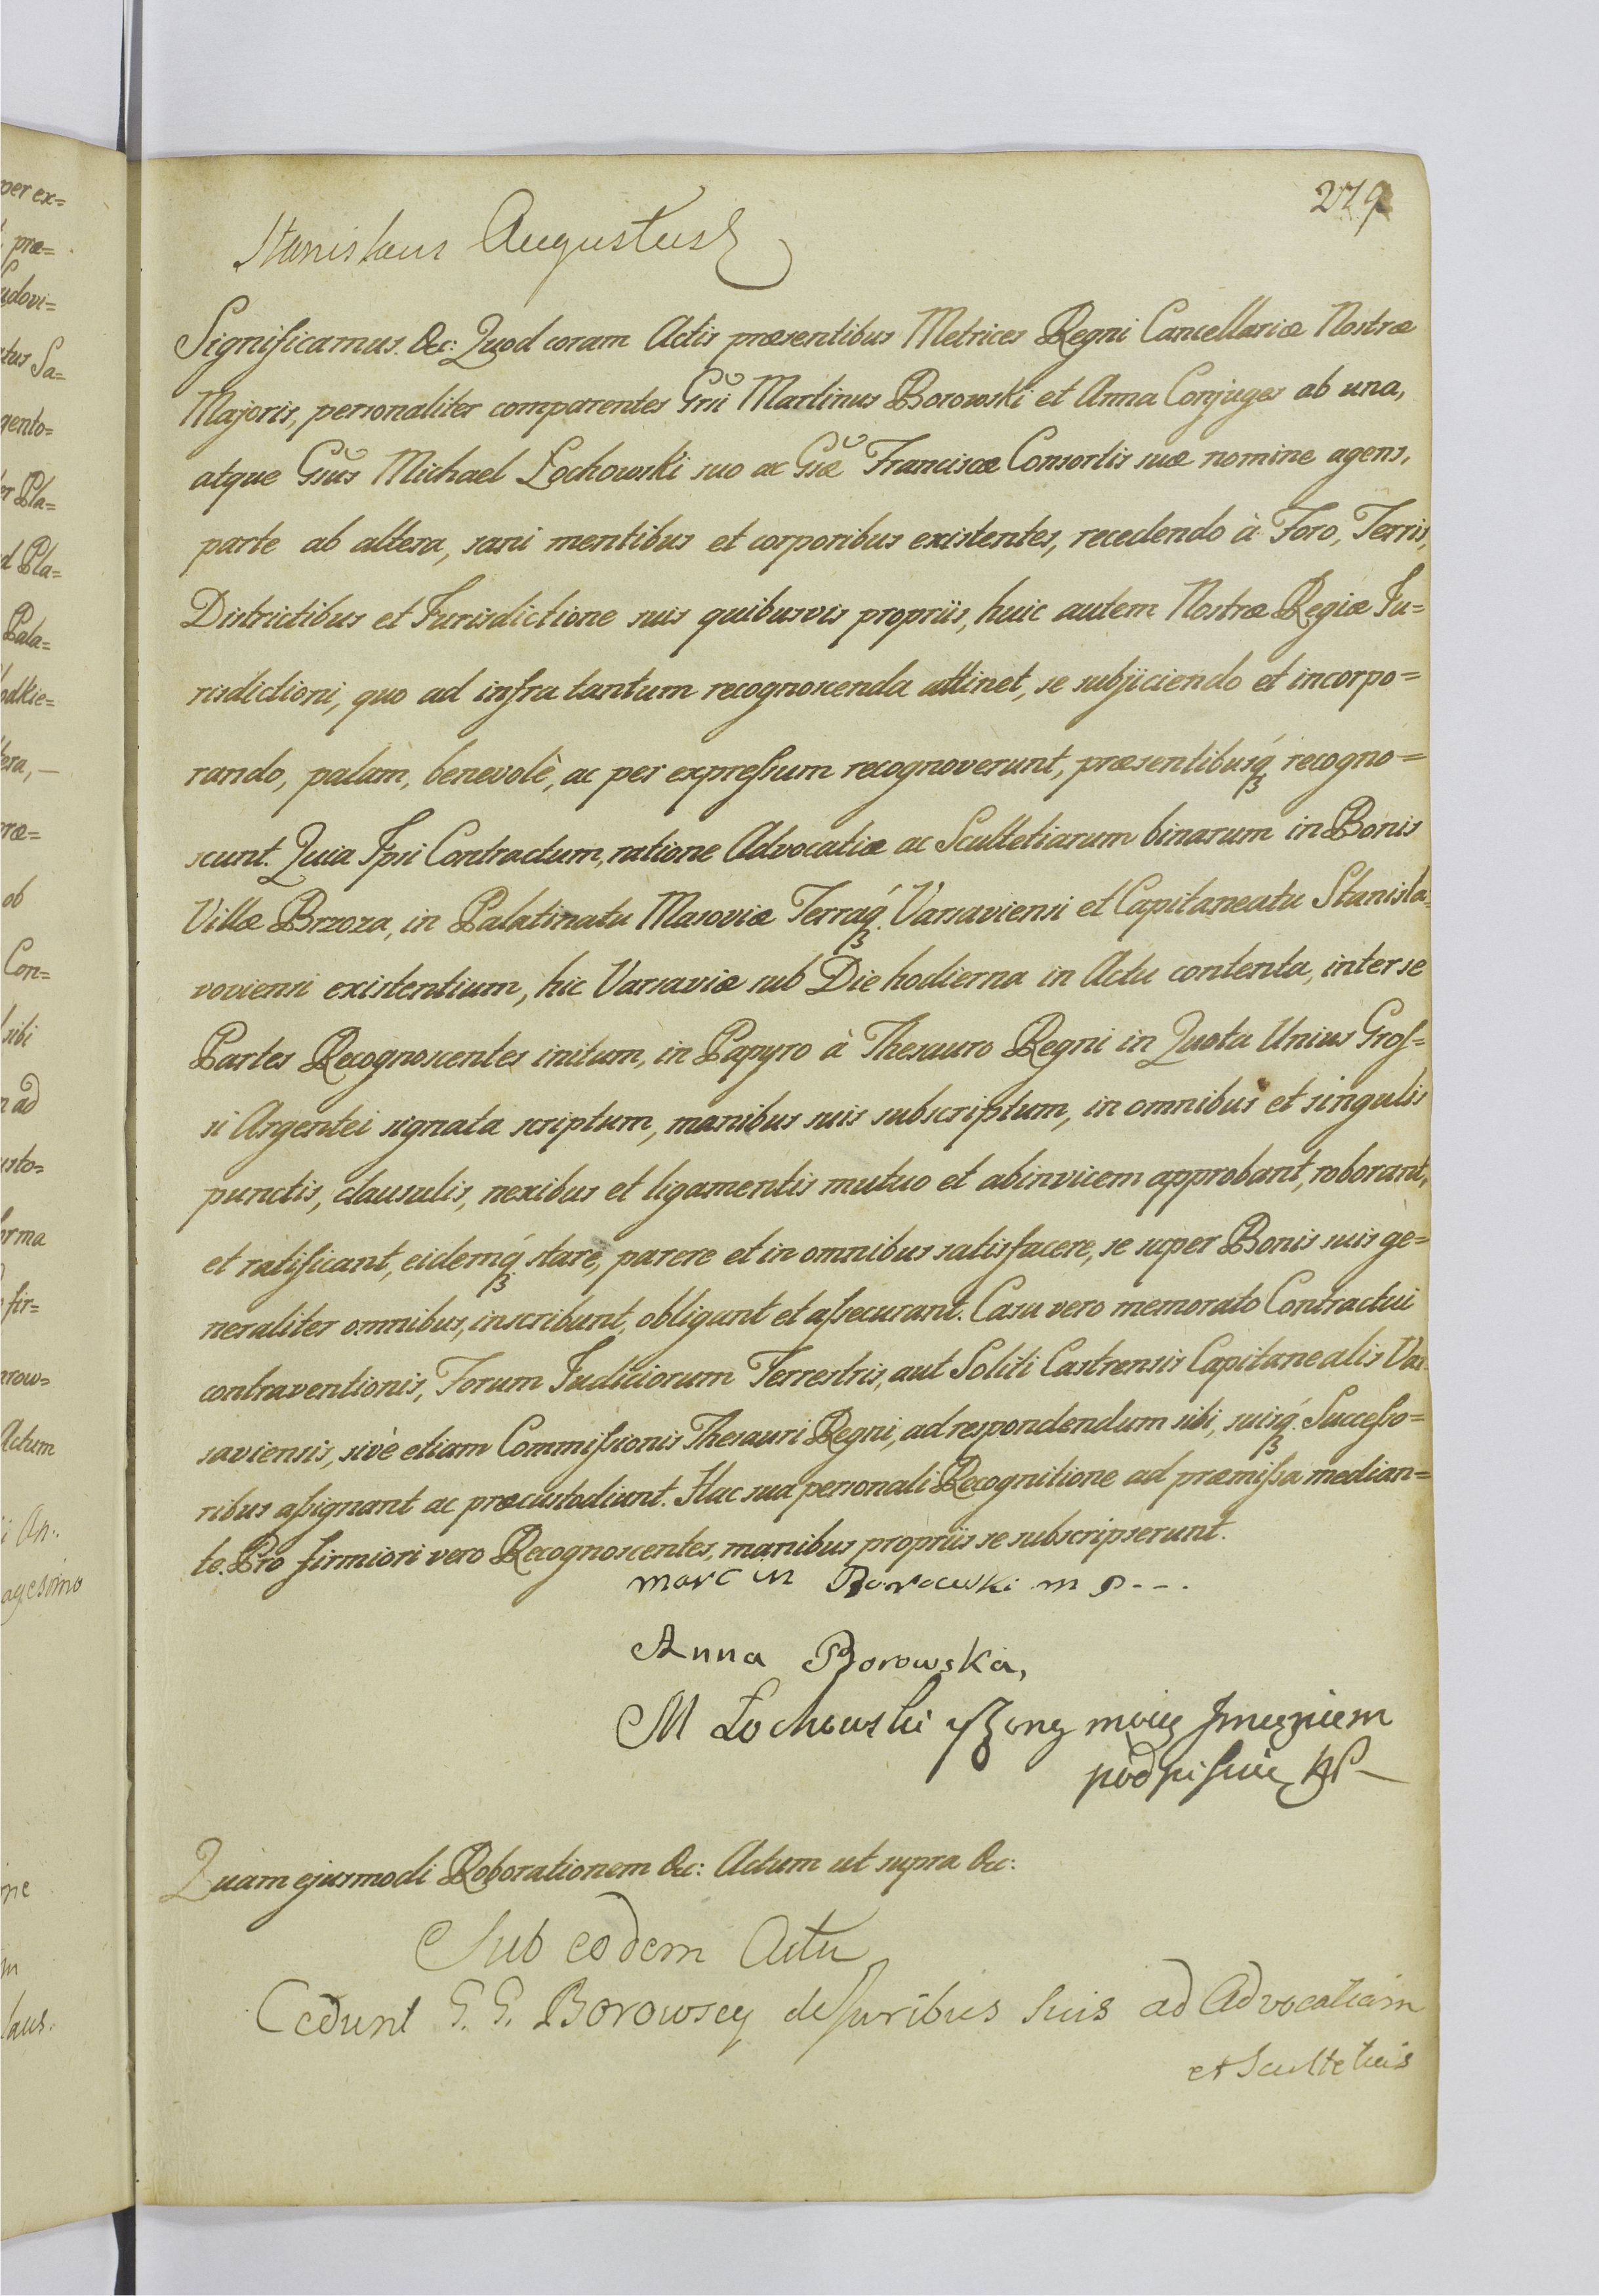 279
Stanislaus Augustus
Significamus &c: Quod coram Actis præsentibus Metrices Regni Cancellariæ Nostræ
Majoris, personaliter comparentes Gsi Martinus Borowski et Anna Conjuges ab una,
atque Gsus Michael Łochowski suo ac Gsæ Franciscæ Consortis suæ nomine agens,
parte ab altera, sani mentibus et corporibus existentes, recedendo à Foro, Terris,
Districtibus et Jurisdictione suis quibusvis propriis, huic autem Nostræ Regiæ Ju=
risdictioni, quo ad infra tantum recognoscenda attinet, se subjiciendo et incorpo=
rando, palàm, benevolè, ac per expressum recognoverunt, præsentibusq́ recogno=
scunt. Quia Ipsi Contractum, ratione Advocatiæ ac Scultetiarum binarum in Bonis
Villæ Brzoza, in Palatinatu Masoviæ Terraq́ Varsaviensi et Capitaneatu Stanisla=
voviensi existentium, hic Varsaviæ sub Die hodierna in Actu contenta, inter se
Partes Recognoscentes initum, in Papyro à Thesauro Regni in Quota Unius Gros=
si Argentei signata scriptum, manibus suis subscriptum, in omnibus et singulis
punctis, clausulis, nexibus et ligamentis mutuo et abinvicem approbant, roborant,
et ratificant, eidemq́ stare, parere et in omnibus satisfacere, se super Bonis suis ge=
neraliter omnibus, inscribunt, obligant et assecurant. Casu vero memorato Contractui
contraventionis, Forum Judiciorum Terrestris, aut Soliti Castrensis Capitanealis Var
saviensis, sivè etiam Commissionis Thesauri Regni, ad respondendum sibi, suisq́ Successo=
ribus assignant ac præcustodiunt. Hac sua personali Recognitione ad præmissa median=
te. Pro firmiori vero Recognoscentes, manibus propriis se subscripserunt.
marcin Borowski m p---
Anna Borowska,
M Łochowski y Zony moiey Jmieniem
podpisuię
Quam ejusmodi Roborationem &c: Actum ut supra &c:
Sub eodem Actu
Cedunt G. G. Borowscy de Juribus suis ad Advocatiam
et Scultetias